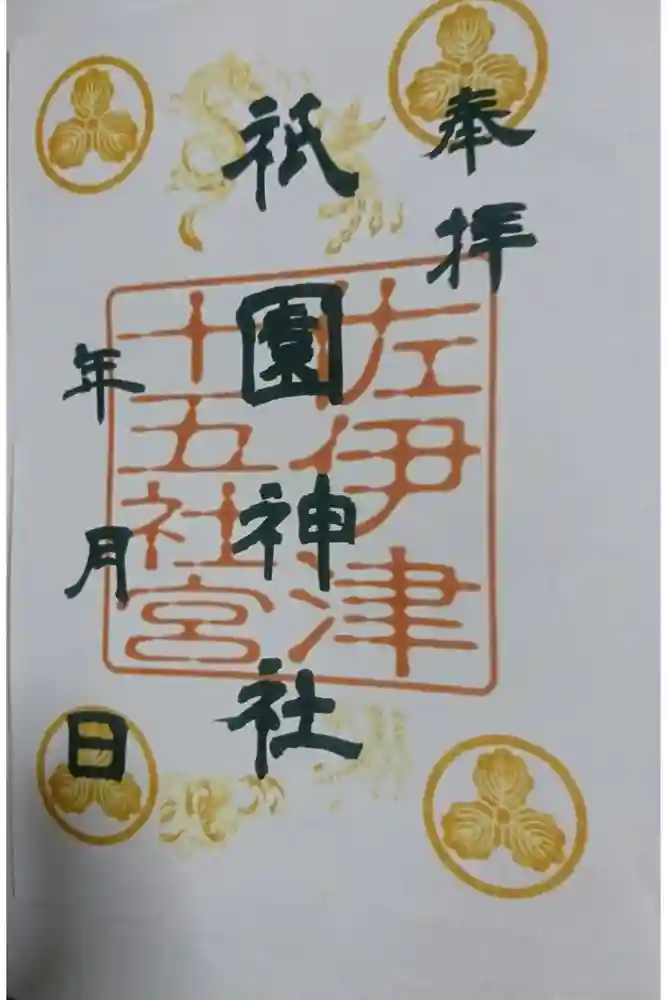 奉拝
祇園神社
佐伊津
十五社宮
年月日